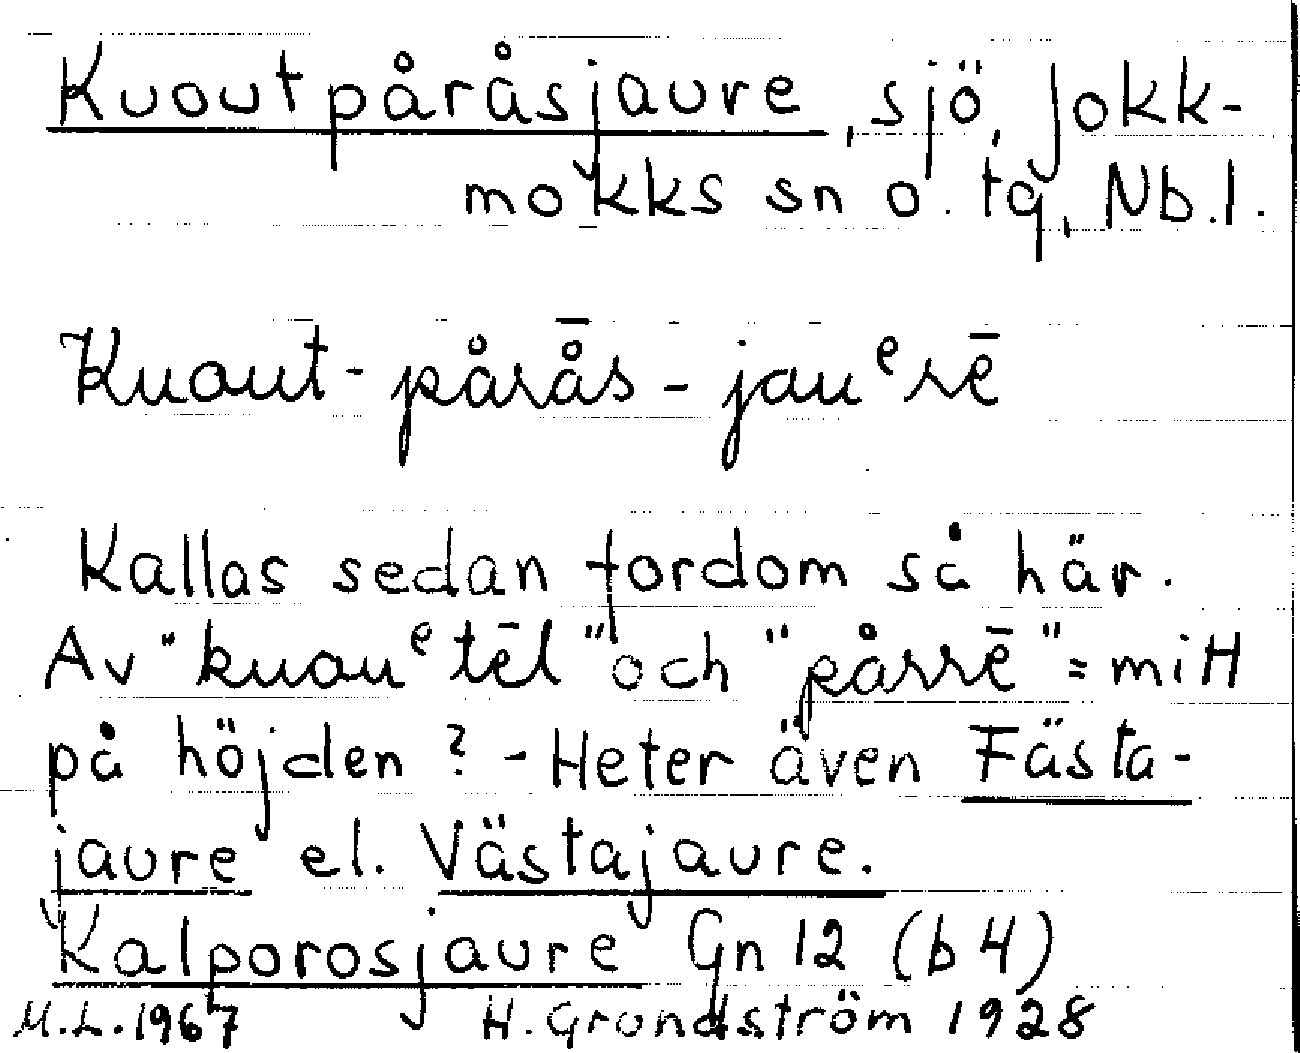 Kuoutpåråsjaure, sjö, Jokk-
mokks sn o. tg, Nb.l.
Kuout-pårå̄s-jauᵉrē
Kallas sedan fordom så här.
Av "kuouᵉtēl" och "pårrē" = mitt
på höjden? - Heter även Fästa-
jaure el. Västajaure.
Kalporosjaure Gn 12 (b4)
M.L. 1967 H. Grundström 1928